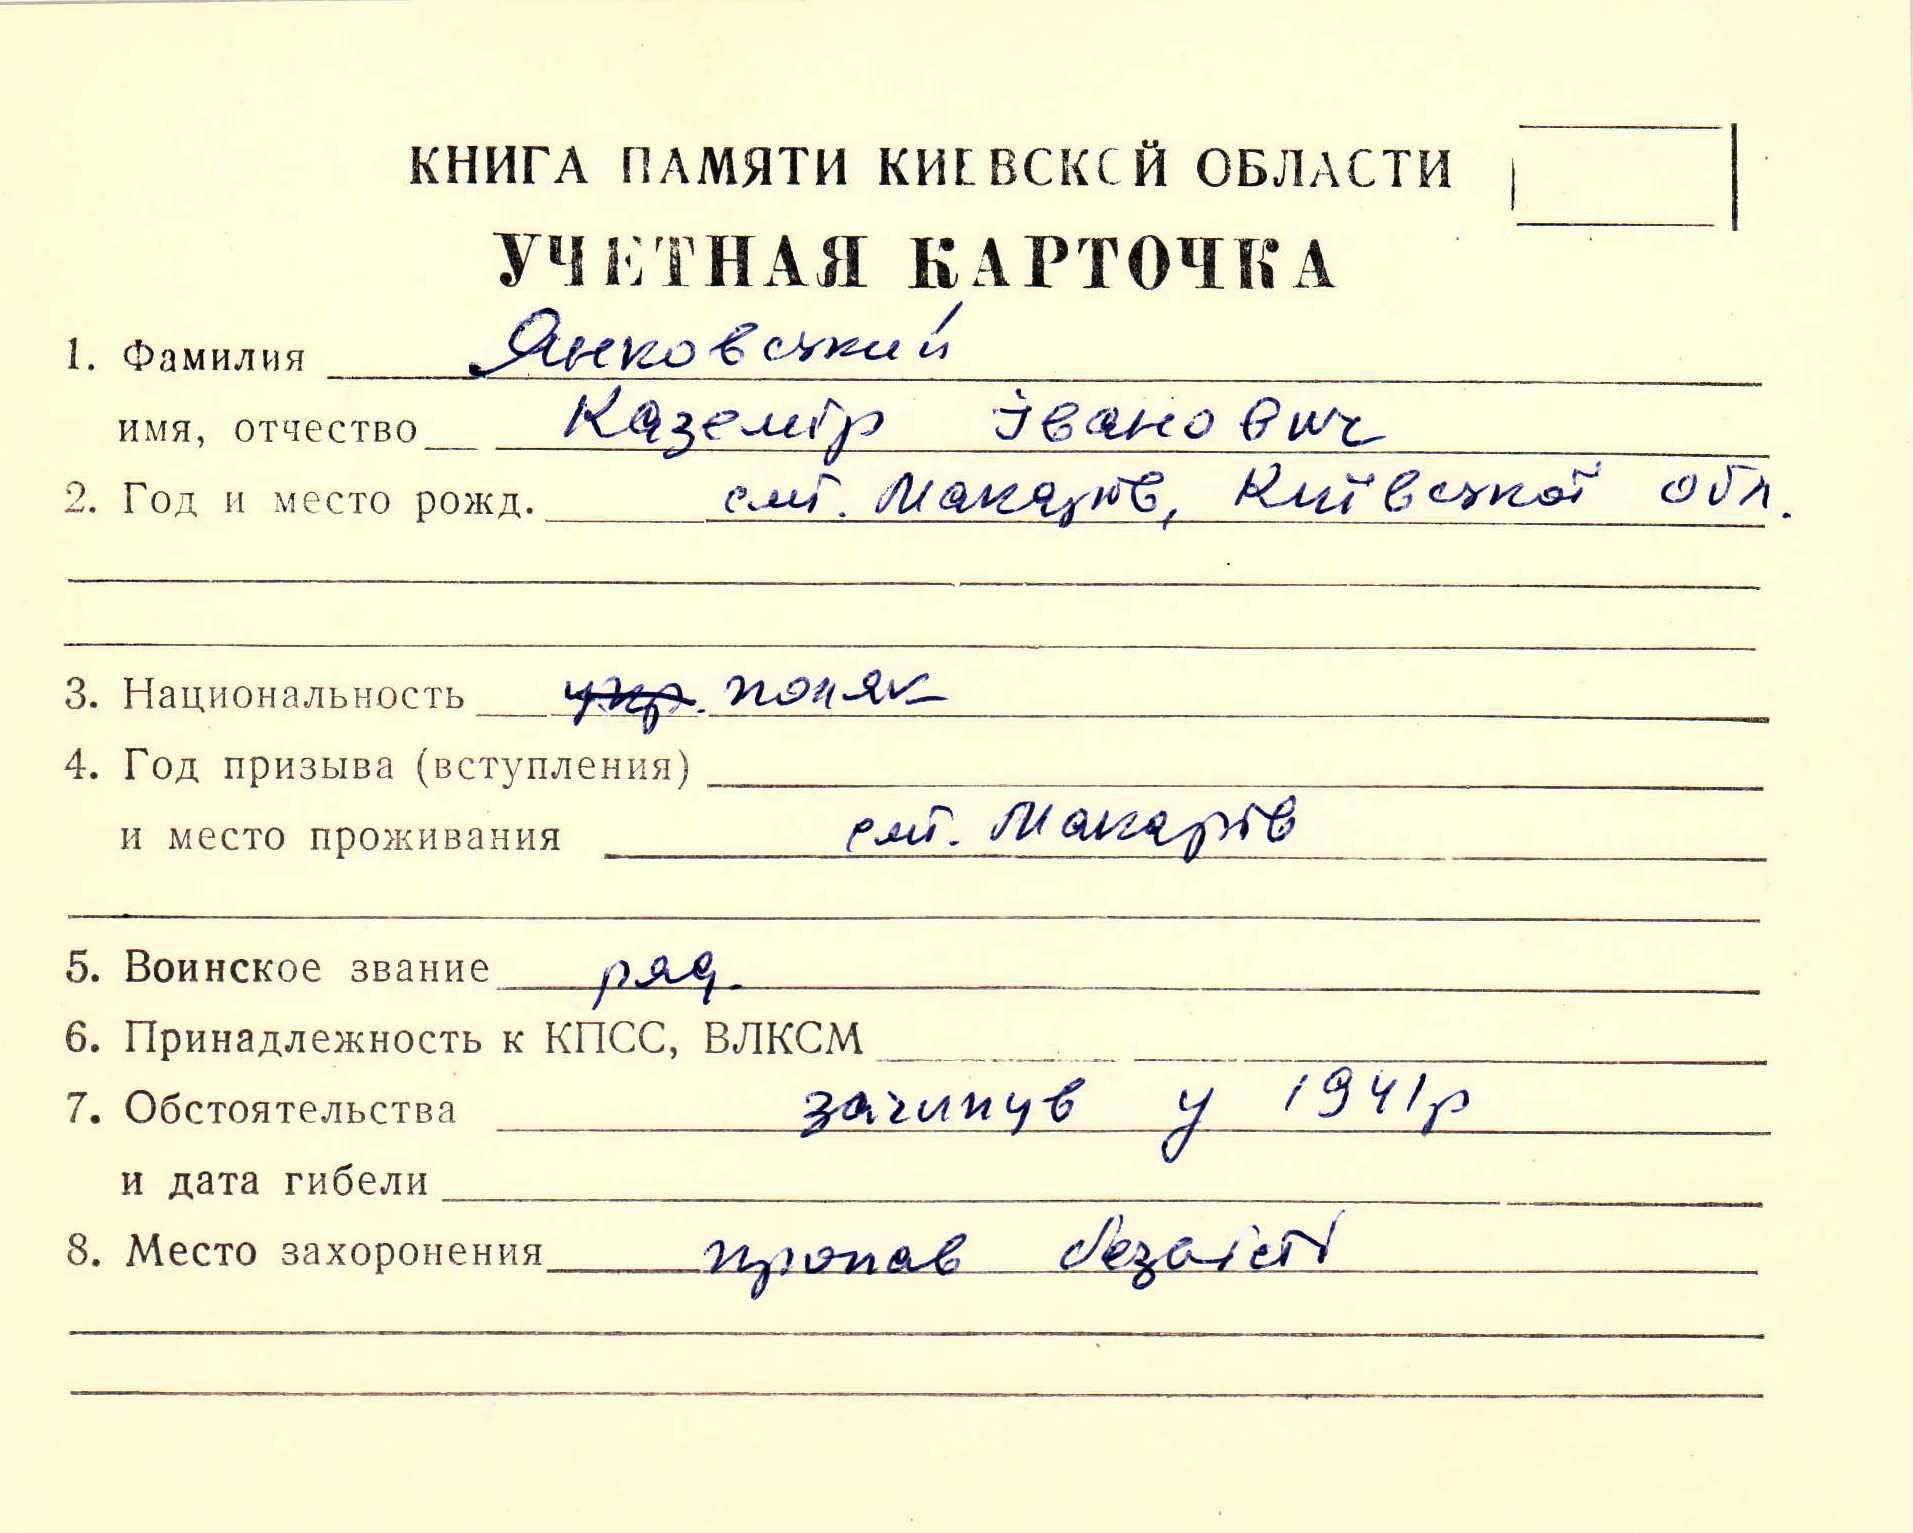 КНИГА ПАМЯТИ КИЕВСКОЙ ОБЛАСТИ
УЧЕТНАЯ КАРТОЧКА
1. Фамилия Янковський
имя, отчество Каземір Іванович
2. Год и место рожд. смт. Макарів, Київської обл.
3. Национальность укр. поляк
4. Год призыва (вступления)
и место проживания смт. Макарів
5. Воинское звание ряд.
6. Принадлежность к КПСС, ВЛКСМ
7. Обстоятельства загинув у 1941р
и дата гибели
8. Место захоронения пропав безвісті